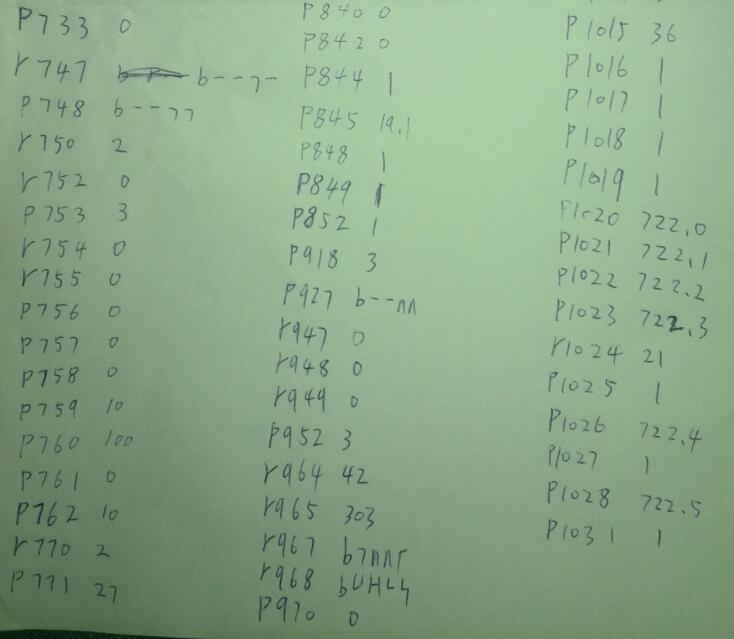 P733 0
r747 b--7-
P748 b--77
r750 2
r752 0
P753 3
r754 0
r755 0
P756 0
P757 0
P758 0
P759 10
P760 100
P761 0
P762 10
r770 2
P771 27
P840 0
P842 0
P844 1
P845 19.1
P848 1
P849 1
P852 1
P918 3
P927 b--nn
r947 0
r948 0
r949 0
P952 3
r964 42
r965 303
r967 b7nnr
r968 bUHLh
P970 0
P1015 36
P1016 1
P1017 1
P1018 1
P1019 1
P1020 722.0
P1021 722.1
P1022 722.2
P1023 722.3
r1024 21
P1025 1
P1026 722.4
P1027 1
P1028 722.5
P1031 1